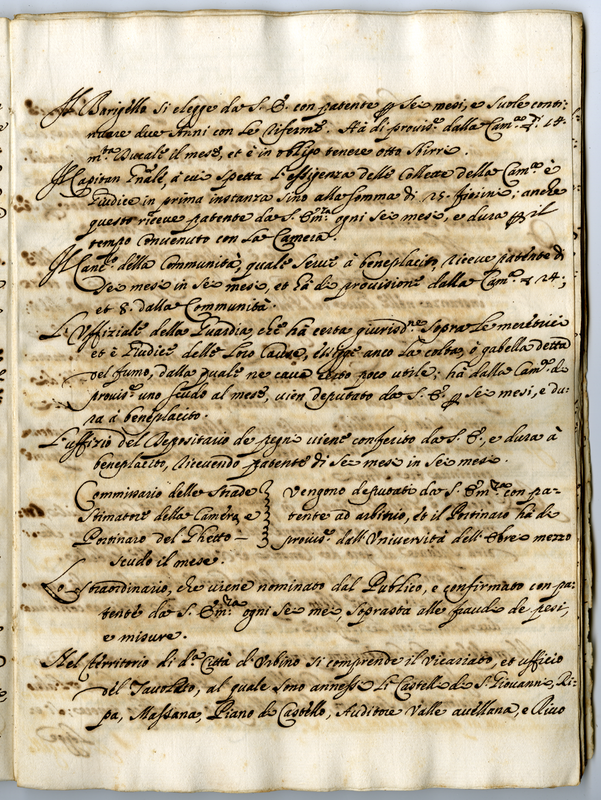 Il Barigello si elegge da S. E. con patente p sei mesi, e suole conti-
nuare due Anni con le Riferme. Hà di provis.e dalla Cam.a 14.
m.ta Ducale il mese, et è in obligo tenere otto Sbirri.
Il Capitan Gnãle, à cui spetta l'essigenza delle Collette della Cam.a è
Giudice in prima instanza sino alla somma di 25. fiorini; anche
questo riceve patente da S. Em.za ogni sei mesi, e dura p il
tempo convenuto con la Camera.
Il Canc.e della Communità, quale serve à beneplacito, riceve patente di
sei mesi in sei mesi, et hà di provisione dalla Cam.a 24;
et 8. dalla Communità.
L'Uffiziale della Guardia, che hà certa giurisd.ne sopra le meretrici
et è Giudice delle loro Cause, essigge anco la colta, ò gabella detta
del fumo, dalla quale ne cava poco utile; hà dalla Cam.a di
provis.e uno scudo al mese, vien deputato da S. E. p sei mesi, e du-
ra à beneplacito.
L'uffizio del Depositario de pegni viene conferito da S. E., e dura à
beneplacito, ricevendo patente di sei mesi in sei mesi.
Commissario delle Strade
Stimatore della Camera, e
Portinaro del Ghetto —
vengono deputati da S. Em.za con pa-
tente ad arbitrio, et il Portinaro hà di
provis.e dall'Università dell'Ebrei mezzo
scudo il mese.
Lo straordinario, che viene nominato dal Publico, e confirmato con pa-
tente da S. Em.za ogni sei mesi, soprasta alle fraudi de pesi,
e misure.
Nel territorio di d.a Città d'Urbino si comprende il Vicariato, et ufficio
del Tavoleto, al quale sono annessi li Castelli di S. Giovanni, Ri-
pa, Massana, Piano di Castello, Auditore Valle avellana, e Rivo